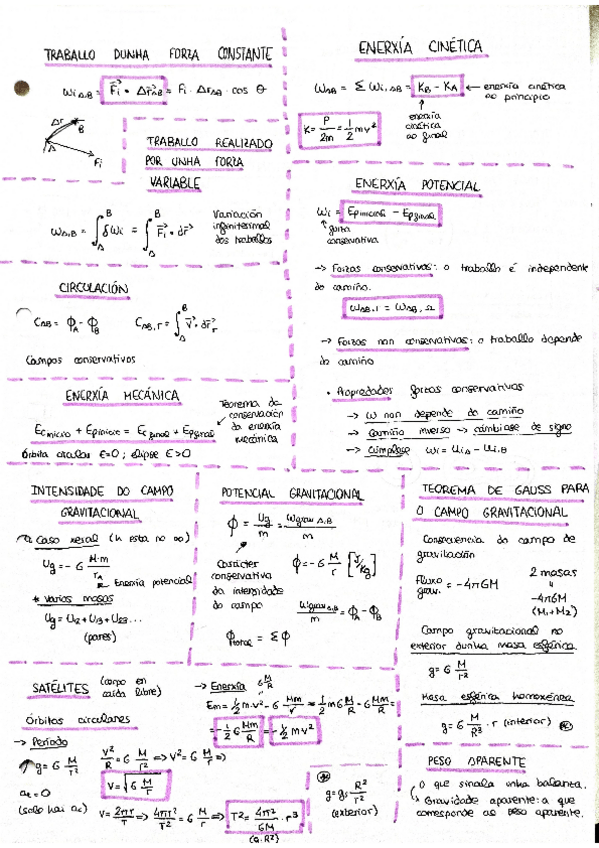 TRABALLO DUNHA FORZA CONSTANTE
W_i A,B = F⃗_i • Δr⃗_AB = F_i · Δr_AB · cos θ
Δr
B
A
F_i
TRABALLO REALIZADO
POR UNHA FORZA
VARIABLE
W_A,B = ∫_A^B δW_i = ∫_A^B F⃗_i • dr⃗
Variación
infinitesimal
dos traballos
CIRCULACIÓN
C_AB = ϕ_A - ϕ_B
C_AB,r = ∫_A^B V⃗ • dr⃗_r
Campos conservativos
ENERXÍA MECÁNICA
Ec_inicio + Ep_inicio = Ec_final + Ep_final
Teorema de
conservación
da enerxía
mecánica
órbita circular E=0 ; elipse E>0
ENERXÍA CINÉTICA
W_AB = Σ W_i,AB = K_B - K_A ← enerxía cinética
ao principio
enerxía
cinética
ao final
K = P/2m = 1/2 mv²
ENERXÍA POTENCIAL
W_i = Ep_inicial - Ep_final
forza
conservativa
→ Forzas conservativas: o traballo é independente
do camiño.
W_AB,1 = W_AB,2
→ Forzas non conservativas: o traballo depende
do camiño
• Propiedades forzas conservativas
→ W non depende do camiño
→ Camiño inverso → cámbiase de signo
→ Cúmplese W_i = U_iA - U_iB
INTENSIDADE DO CAMPO
GRAVITACIONAL
Caso xeral (h esta no ∞)
U_g = - G M·m/r_A
Enerxía potencial
* Varias masas
U_g = U_12 + U_13 + U_23...
(pares)
POTENCIAL GRAVITACIONAL
ϕ = U_g/m = W_grav A,B/m
Carácter
conservativo
da intensidade
do campo
ϕ = - G M/r [J/Kg]
W_grav A,B/m = ϕ_A - ϕ_B
ϕ_total = Σ ϕ
TEOREMA DE GAUSS PARA
O CAMPO GRAVITACIONAL
Consecuencia do campo de
gravitación
Fluxo grav. = -4πGM
2 masas
-4πG
(M₁+M₂)
Campo gravitacional no
exterior dunha masa esférica
g = G M/r²
Masa esférica homoxénea
g = G M/R³ · r (interior)
SATÉLITES (corpo en
caída libre)
Órbitas circulares
→ Período
g = G M/r²
a_t = 0
(solo hai a_c)
V²/R = G M/r² ⇒ V² = G M/r ⇒
V = √(G M/r)
V = 2πr/T ⇒ 4πr²/T² = G M/r ⇒ T² = 4π²/GM · r³
(G·R²)
→ Enerxía
G M/R
Em = 1/2 m·v² - G Mm/r = 1/2 m G M/R - G Mm/R =
= - 1/2 G Mm/R = - 1/2 mv²
g = g₀ R²/r²
(exterior)
PESO APARENTE
O que sinala unha balanza.
Gravidade aparente: a que
corresponde ao peso aparente.